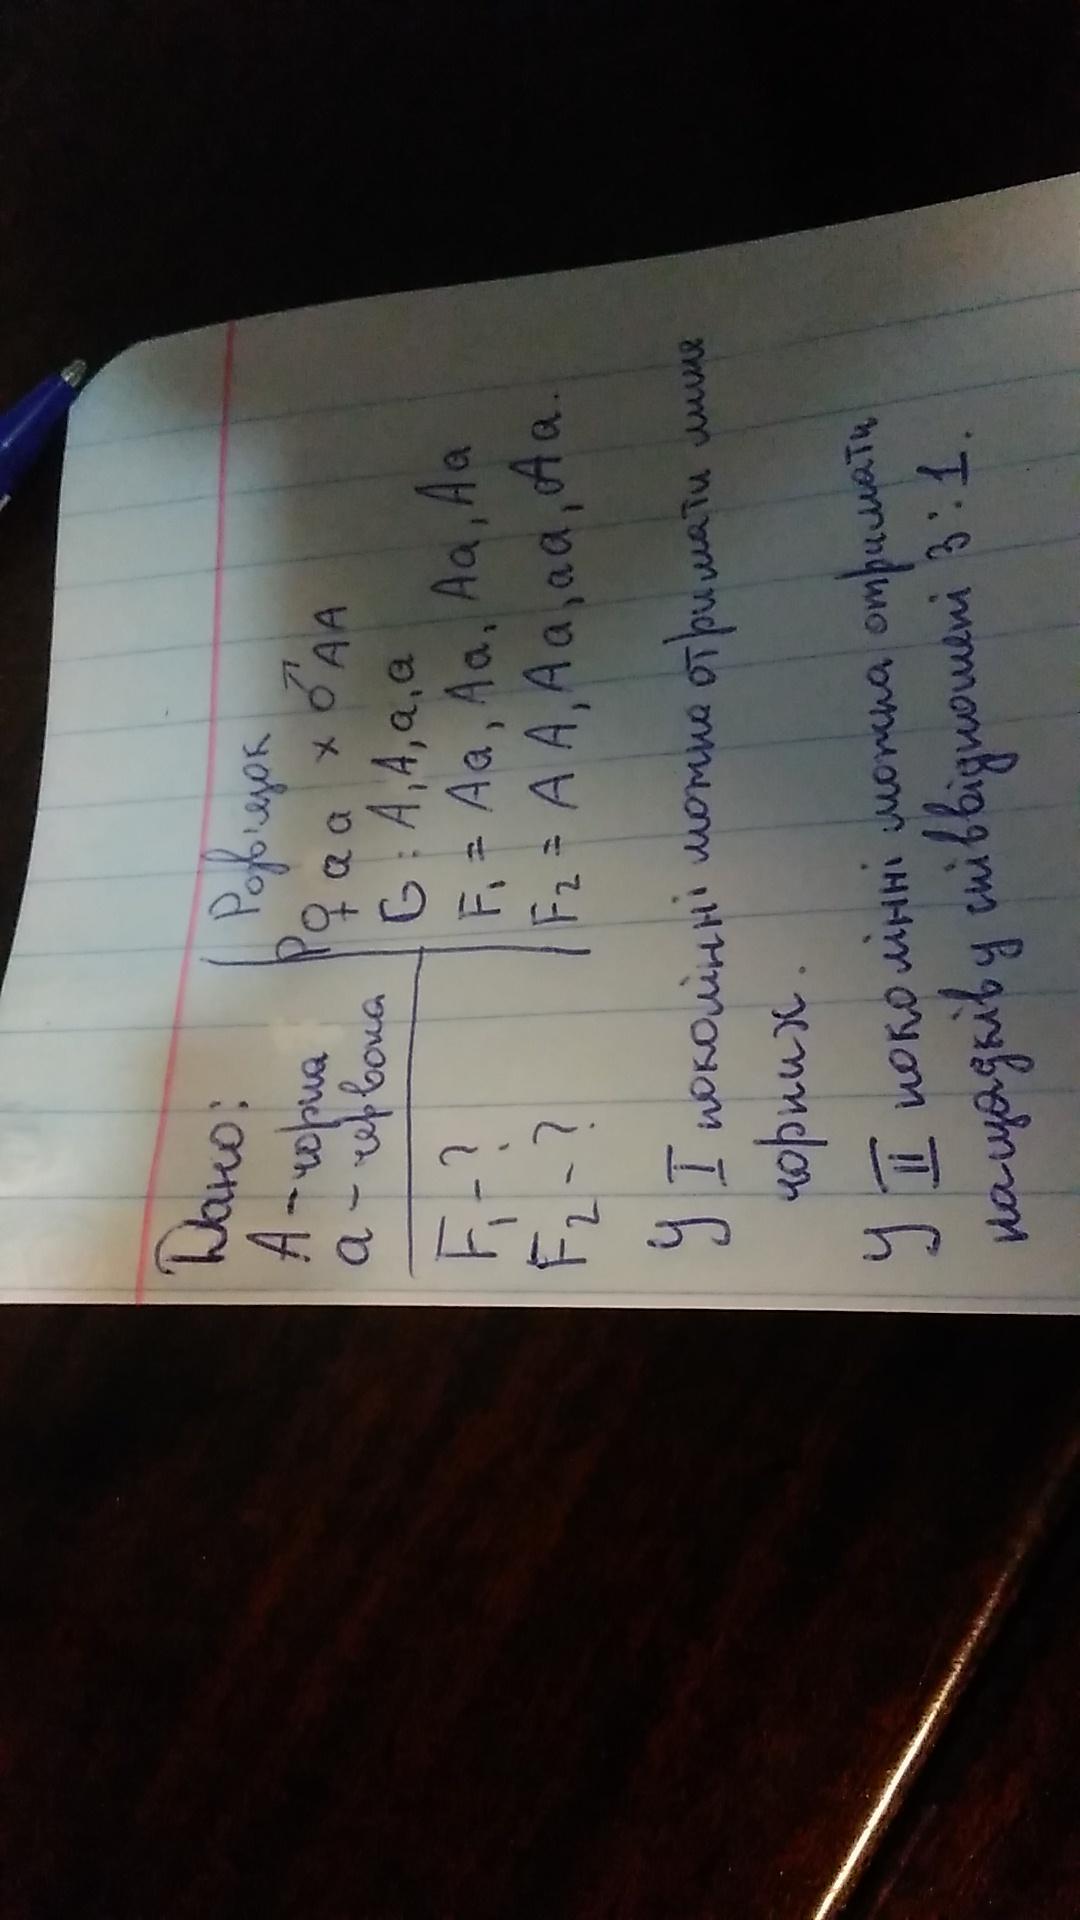 Дано:
А - чорна
а - червона
F₁ - ?
F₂ - ?
Розв'язок
P ♀ aa x ♂ AA
G: A, A, a, a
F₁ = Aa, Aa, Aa, Aa
F₂ = AA, Aa, aa, Aa.
У I поколінні можна отримати лише
чорних.
У II поколінні можна отримати
нащадків у співвідношені 3:1.